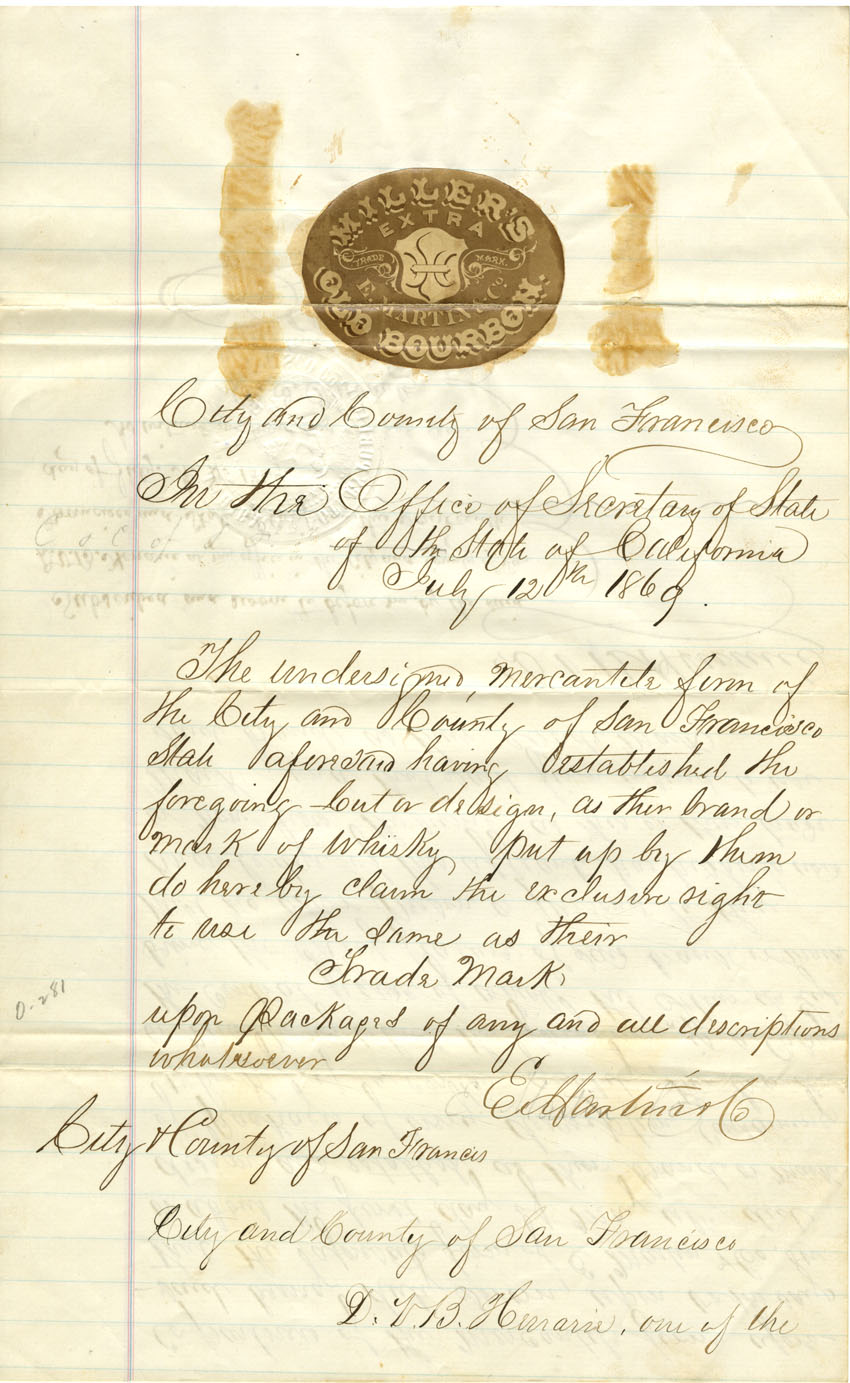 MILLER'S
EXTRA
TRADE MARK
E. MARTIN & Co.
OLD BOURBON.
City and County of San Francisco
In the Office of Secretary of State
of the State of California
July 12th 1869.
The undersigned, mercantile firm of
the City and County of San Francisco
State aforesaid having established the
foregoing cut or design, as their brand or
mark of Whisky put up by them
do hereby claim the exclusive right
to use the same as their
Trade Mark
upon Packages of any and all descriptions
whatsoever
0-281
E Martin & Co
City & County of San Francis
City and County of San Francisco
D. V. B. Henarie, one of the